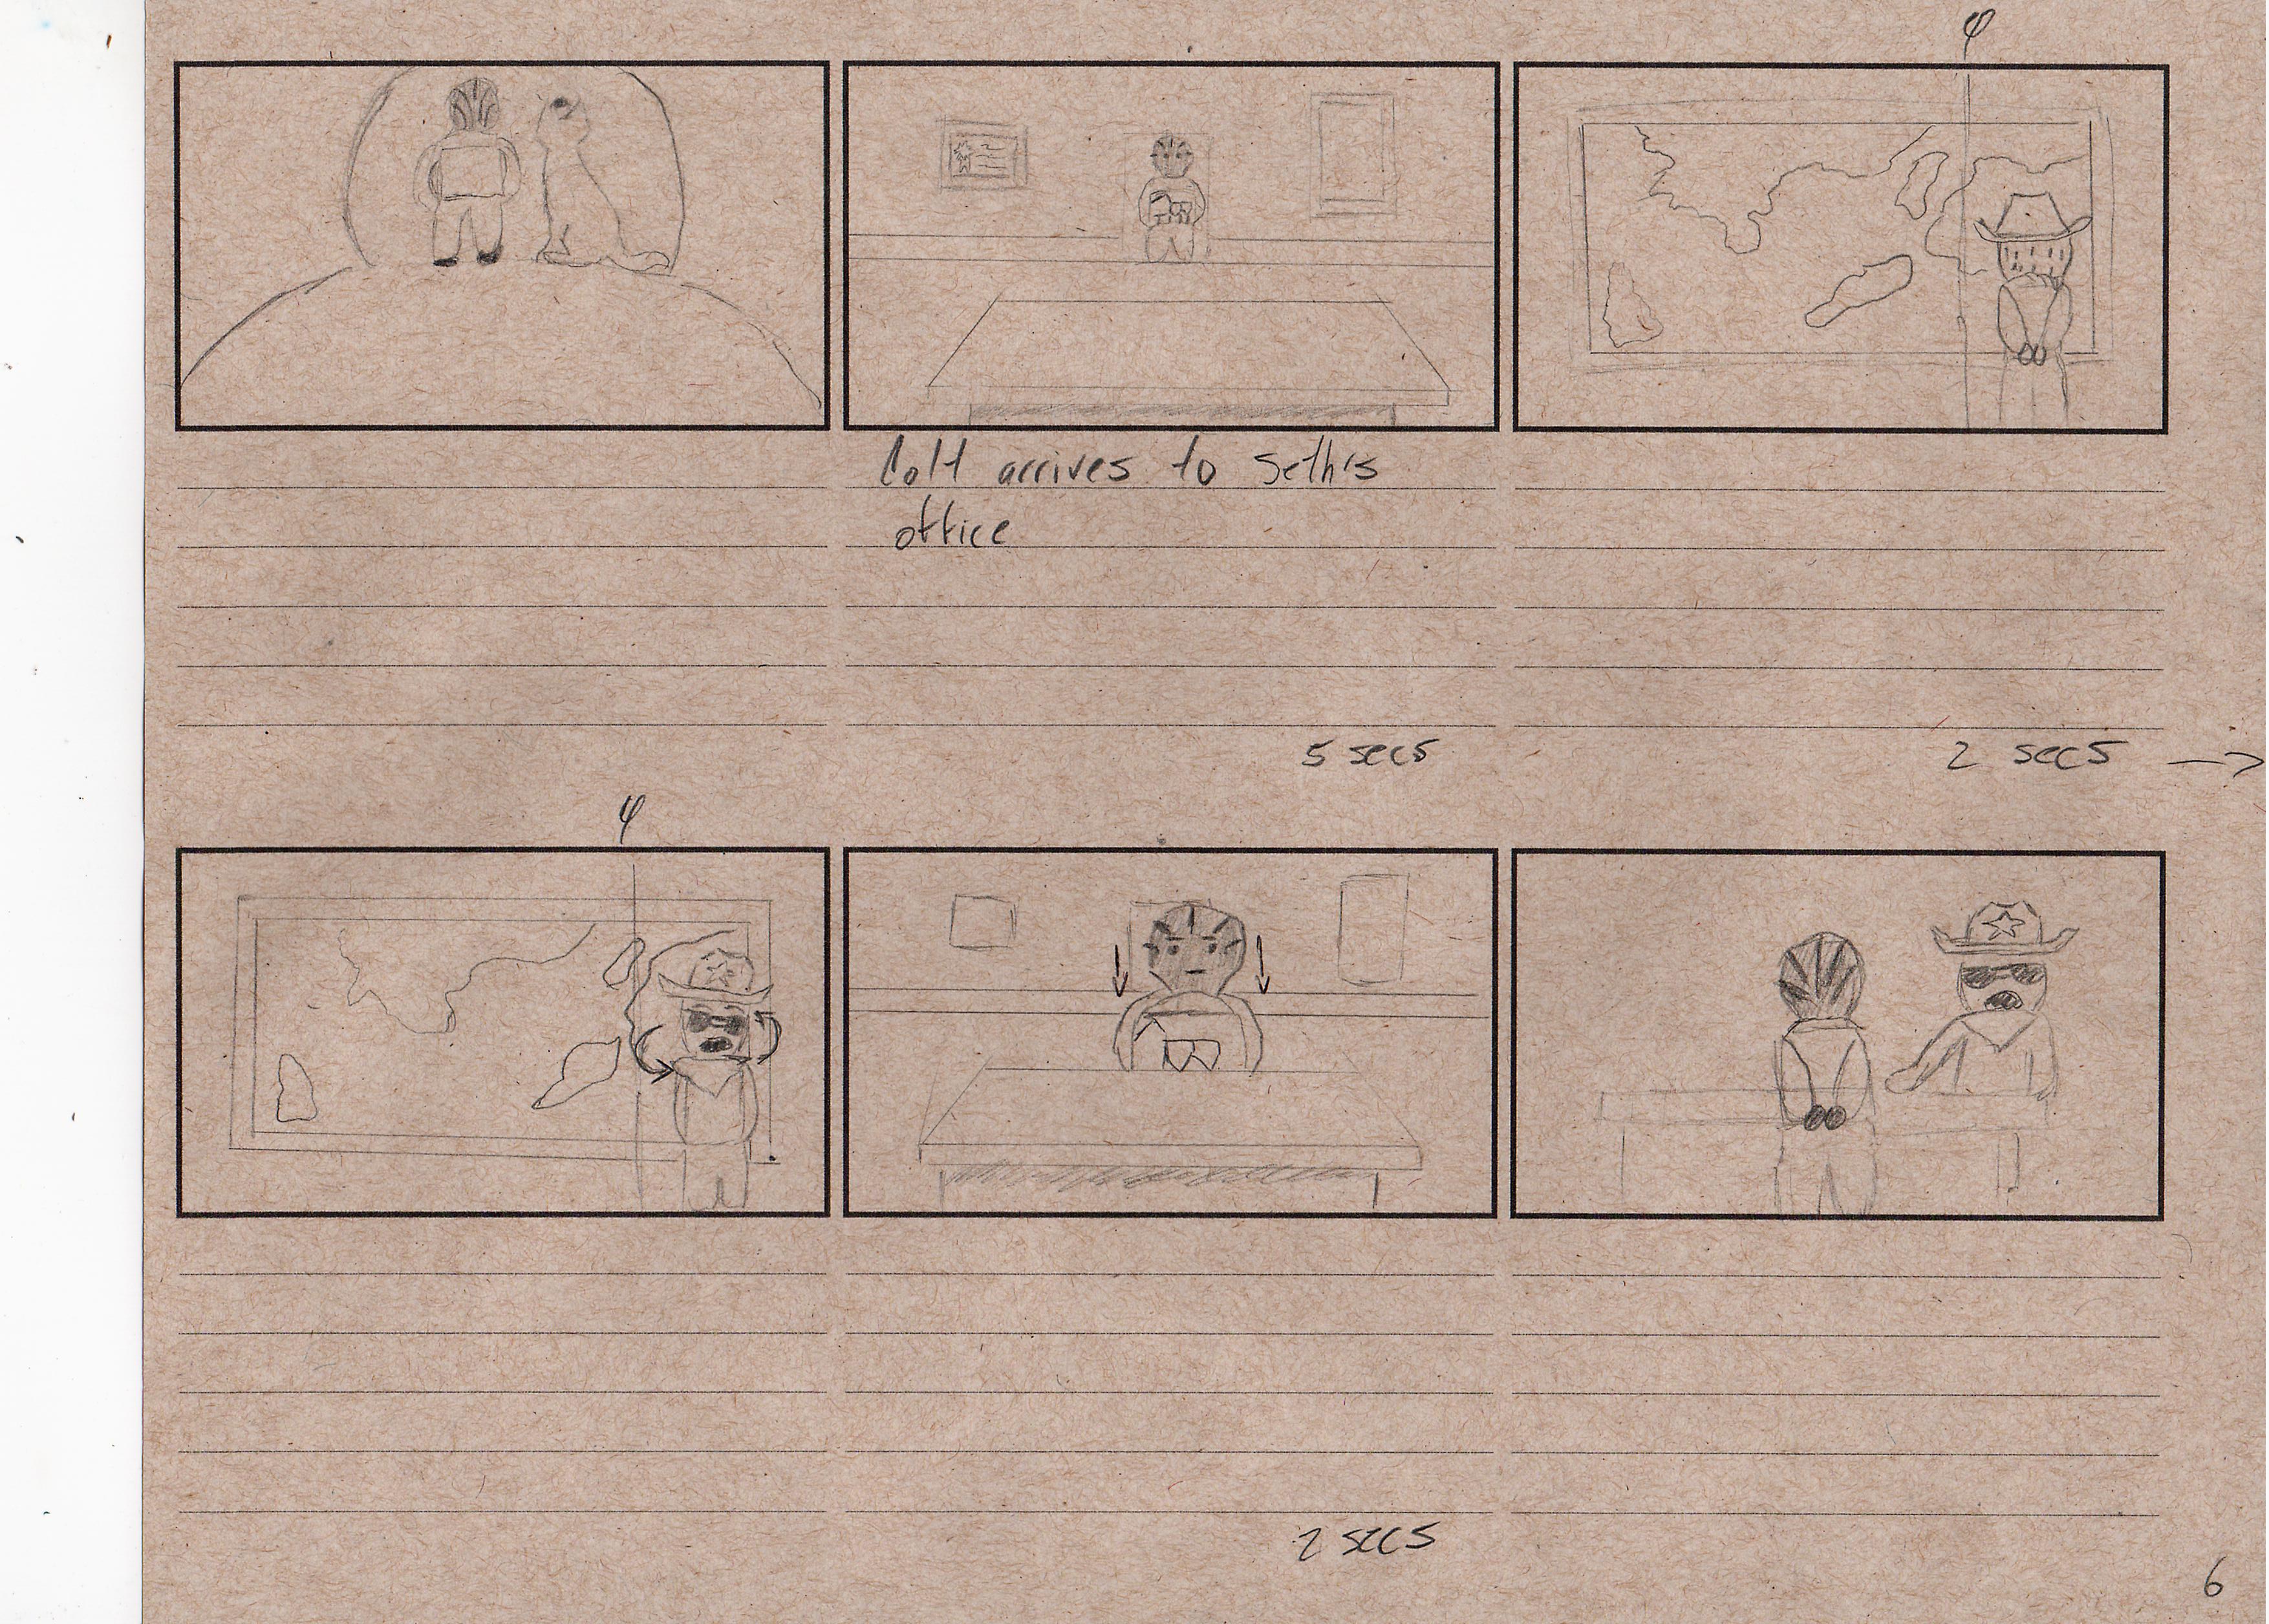 φ
Colt arrives to Seth's
office
5 secs
2 secs →
φ
2 secs
6